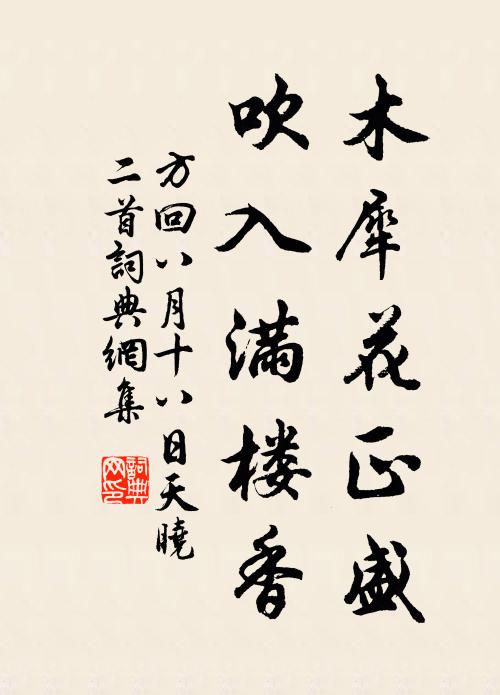 木犀花正盛
吹入满楼香
方回八月十八日天曉
二首詞典網集
詞典网印